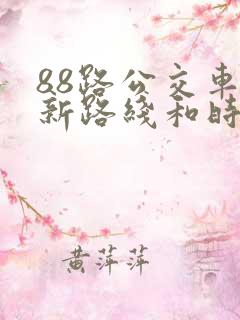 88路公交車
新路綫和時
黄萍萍